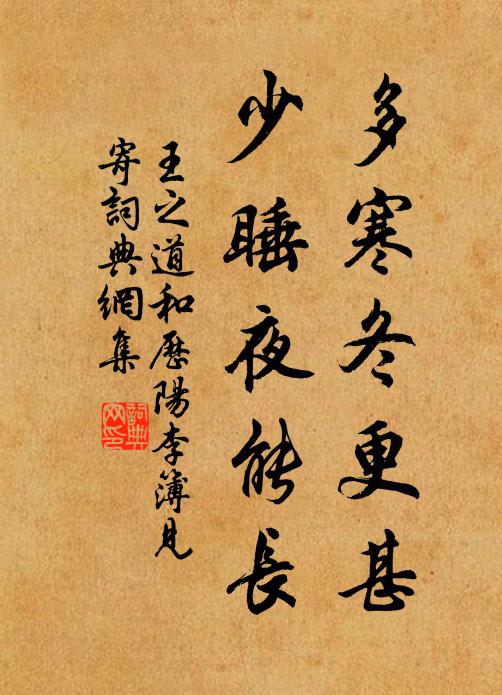 多寒冬更甚
少睡夜能長
王之道和歷陽李簿見
寄詞典網集
詞典
網印